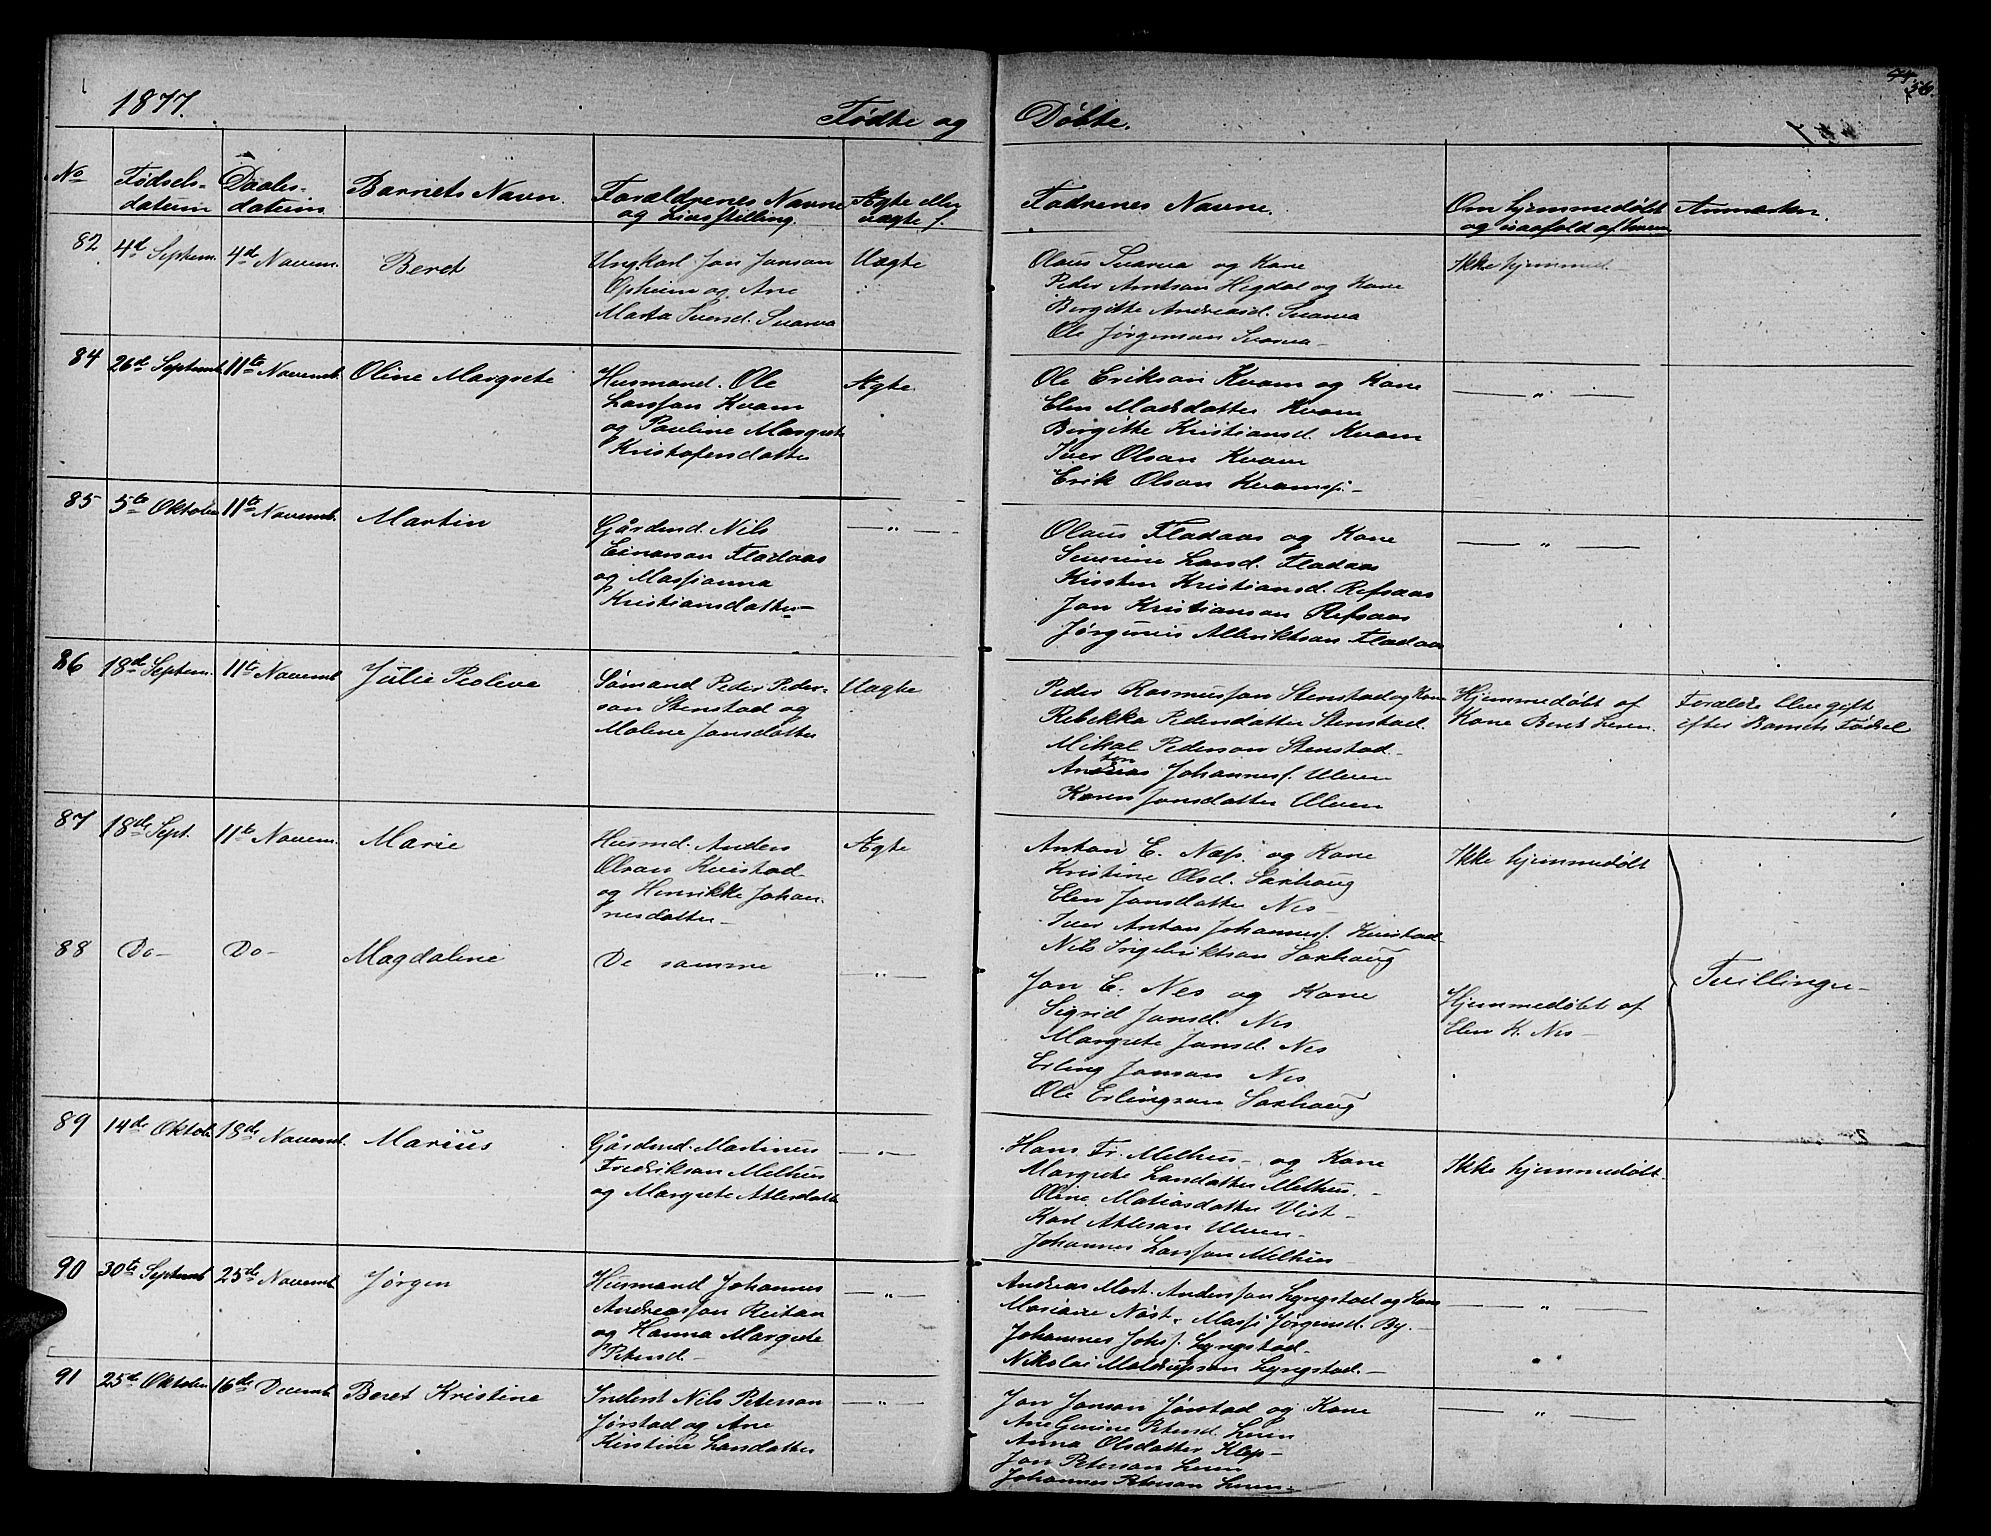 1877.
Fødte og
Døbte.
44.
56.
No
Fødsels-
datum
Daabs-
datum
Barnets Navn.
Forældrenes Navne
og Livsstilling.
Ægte eller
uægte f.
Fadrenes Navne.
Om hjemmedøbt
og isaafald af hvem
Anmærkn.
82
4de Septem.
4de Novem.
Beret
Ungkarl Jon Jonson
Opheim og Ane
Marta Svensd. Svarva
Uægte
Olaus Svarva og Kone
Peder Arntsen Hegdal og Kone
Birgitte Andreasd. Svarva
Ole Jørgenson Svarva-
Ikke hjemmed.-
84
26de Septemb.
11te Novemb.
Oline Margrete
Husmand. Ole
Larsson Kvam
og Pauline Margrete
Kristofersdatter
Ægte
Ole Erikson Kvam og Kone
Elen Madsdatter Kvam
Birgitte Kristiansd. Kvam
Iver Olson Kvam
Erik Olson Kvamsp.-
— " —
85
5te Oktober
11te Novemb.
Martin
Gårdmd. Nils
Einarson Fladaas
og Massianna
Kristiansdatter-
— " —
Olaus Fladaas og Kone
Severine Larsd. Fladaas
Kirsten Kristiansd. Refsaas
Jon Kristianson Refsaas
Jørginus Albriktson Fladaas
— " —
86
18de Septem.
11te Novemb.
Julie Peolive
Sømand Peder Peder-
son Stenstad og
Malene Jonsdatter
Uægte
Peder Rasmusson Stenstad og Kone
Rebekka Pedersdatter Stenstad.
Mikal Pederson Stenstad.
Anton Johannesf. Ulven
Karen Jonsdatter Ulven
Hjemmedøbt af
Kone Beret Leren.
Foreldr. blev gift
efter Barnets Fødsel
87
18de Sept.
11te Novem.
Marie
Husmd. Anders
Olson Kvistad
og Henrikke Johan-
nesdatter-
Ægte
Anton E. Næss. og Kone
Kristine Olsd. Saxhaug
Elen Jonsdatter Nes-
Iver Anton Johannesf. Kvistad-
Nils Ingebriktson Saxhaug
Ikke hjemmedøbt
88
Do-
Do-
Magdaline
De samme
— " —
Jon E. Nes og Kone
Sigrid Jonsd. Nes
Margrete Jonsd. Nes
Erling Jonson Nes
Ole Erlingson Saxhaug
Hjemmedøbt af
Elen K. Nes-
Tvillinger-
89
14de Oktob.
18de Novemb.
Marius
Gårdmd. Martinus
Fredrikson Melhus
og Margrete Atlesdatter
— " —
Hans Fr. Melhus- og Kone
Margrete Larsdatter Melhus.-
Oline Matiasdatter Vist-
Karl Atleson Ulven-
Johannes Larsson Melhus-
Ikke hjemmedøbt.
90
30te Septemb.
25de Novemb.
Jørgen
Husmand Johannes
Andreasson Reitan
og Hanna Margrete
Petersd.-
— " —
Andreas Mort. Andersson Lyngstad og Kone
Mariane Nøst. Massi Jørgensd. By.-
Johannes Johsf. Lyngstad-
Nikolai Lyngstad.-
— " —
91
25de Oktober
16de Decemb.
Beret Kristine
Inderst Nils Peterson
Jørstad og Ane
Kirstine Larsdatter
— " —
Jon Jonson Jørstad og Kone
Ane Gurine Petersd. Leren
Anna Olsdatter Klep-
Jon Peterson Leren
Johannes Peterson Leren-
— " —